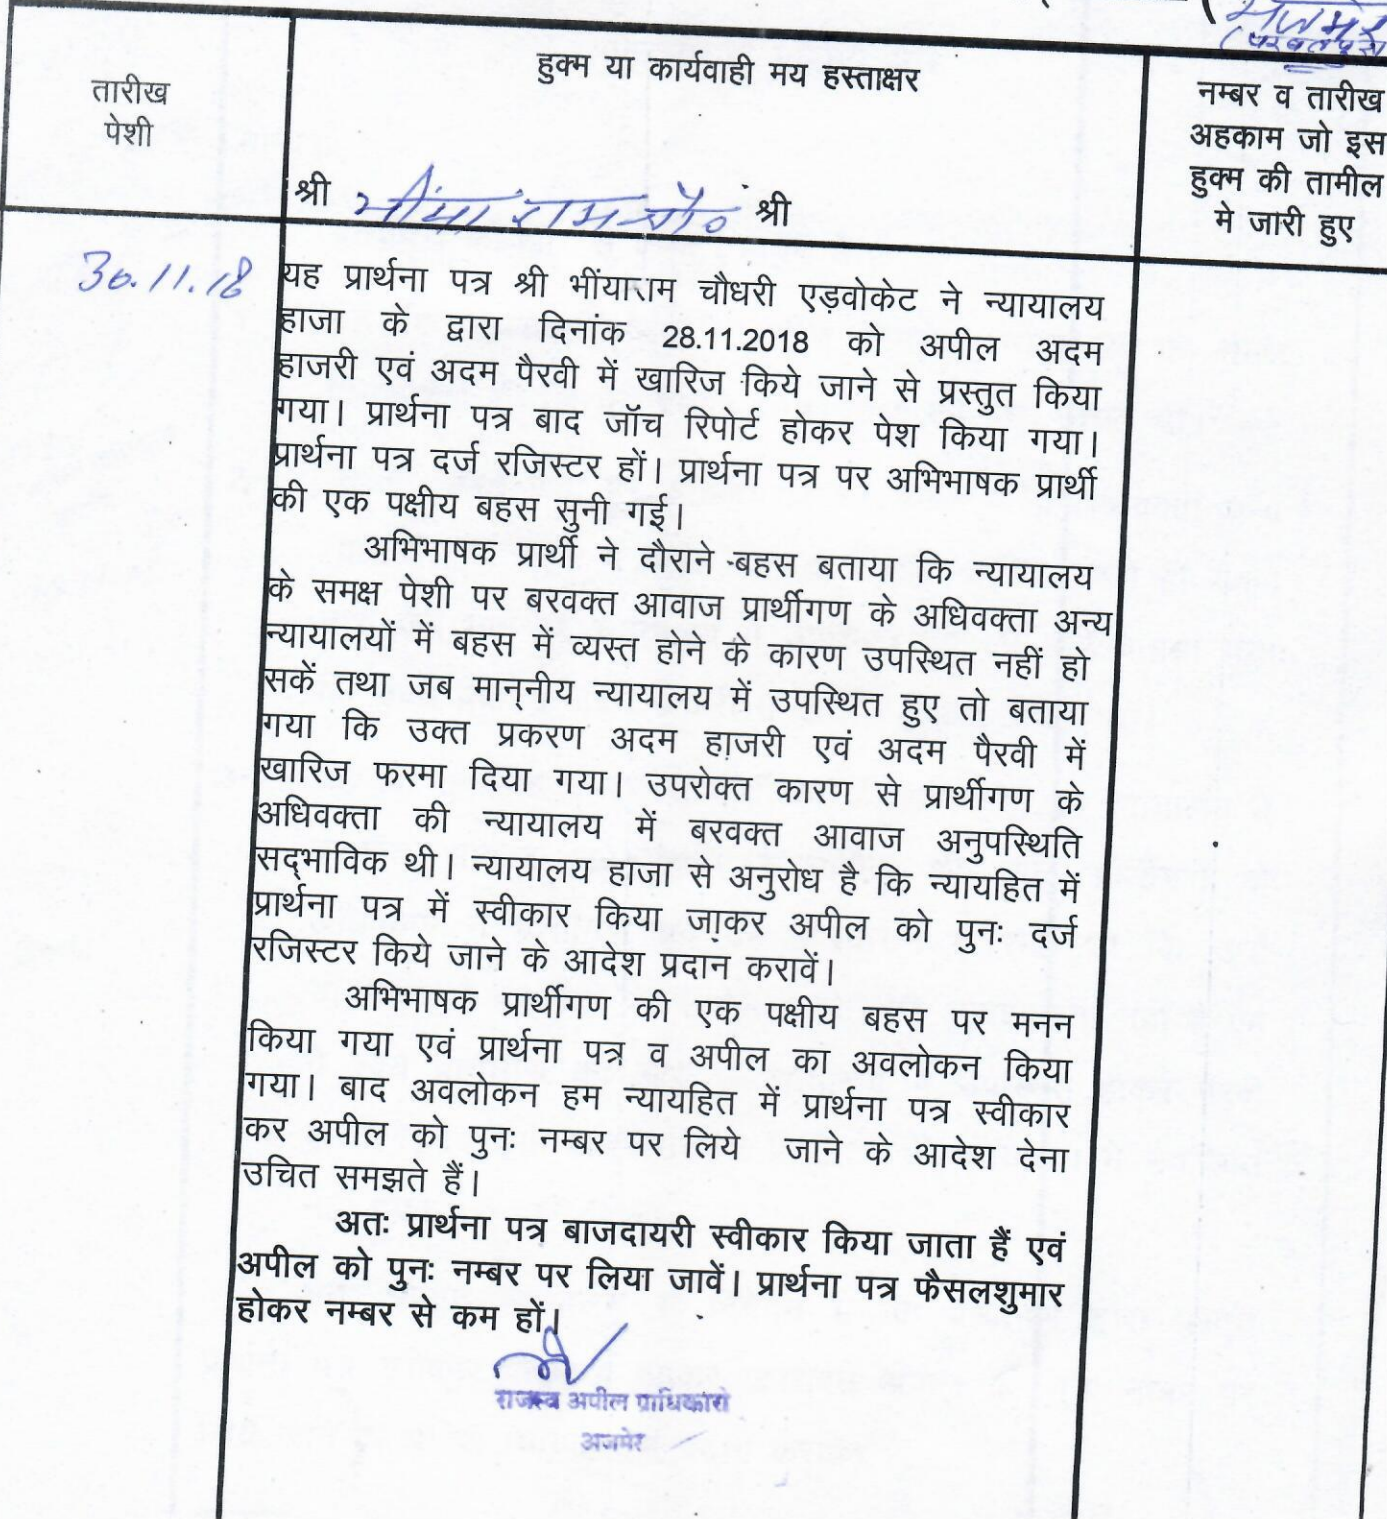 तारीख
पेशी
हुक्म या कार्यवाही मय हस्ताक्षर
श्री भींयाराम चौ० श्री
नम्बर व तारीख
अहकाम जो इस
हुक्म की तामील
मे जारी हुए
30.11.18
यह प्रार्थना पत्र श्री भींयाराम चौधरी एड़वोकेट ने न्यायालय
हाजा के द्वारा दिनांक 28.11.2018 को अपील अदम
हाजरी एवं अदम पैरवी में खारिज किये जाने से प्रस्तुत किया
गया। प्रार्थना पत्र बाद जॉच रिपोर्ट होकर पेश किया गया।
प्रार्थना पत्र दर्ज रजिस्टर हों। प्रार्थना पत्र पर अभिभाषक प्रार्थी
की एक पक्षीय बहस सुनी गई।
अभिभाषक प्रार्थी ने दौराने बहस बताया कि न्यायालय
के समक्ष पेशी पर बरवक्त आवाज प्रार्थीगण के अधिवक्ता अन्य
न्यायालयों में बहस में व्यस्त होने के कारण उपस्थित नहीं हो
सकें तथा जब मान्नीय न्यायालय में उपस्थित हुए तो बताया
गया कि उक्त प्रकरण अदम हाजरी एवं अदम पैरवी में
खारिज फरमा दिया गया। उपरोक्त कारण से प्रार्थीगण के
अधिवक्ता की न्यायालय में बरवक्त आवाज अनुपस्थिति
सद्भाविक थी। न्यायालय हाजा से अनुरोध है कि न्यायहित में
प्रार्थना पत्र में स्वीकार किया जाकर अपील को पुनः दर्ज
रजिस्टर किये जाने के आदेश प्रदान करावें।
अभिभाषक प्रार्थीगण की एक पक्षीय बहस पर मनन
किया गया एवं प्रार्थना पत्र व अपील का अवलोकन किया
गया। बाद अवलोकन हम न्यायहित में प्रार्थना पत्र स्वीकार
कर अपील को पुनः नम्बर पर लिये जाने के आदेश देना
उचित समझते हैं।
अतः प्रार्थना पत्र बाजदायरी स्वीकार किया जाता हैं एवं
अपील को पुनः नम्बर पर लिया जावें। प्रार्थना पत्र फैसलशुमार
होकर नम्बर से कम हों।
राजस्व अपील प्राधिकारी
अजमेर